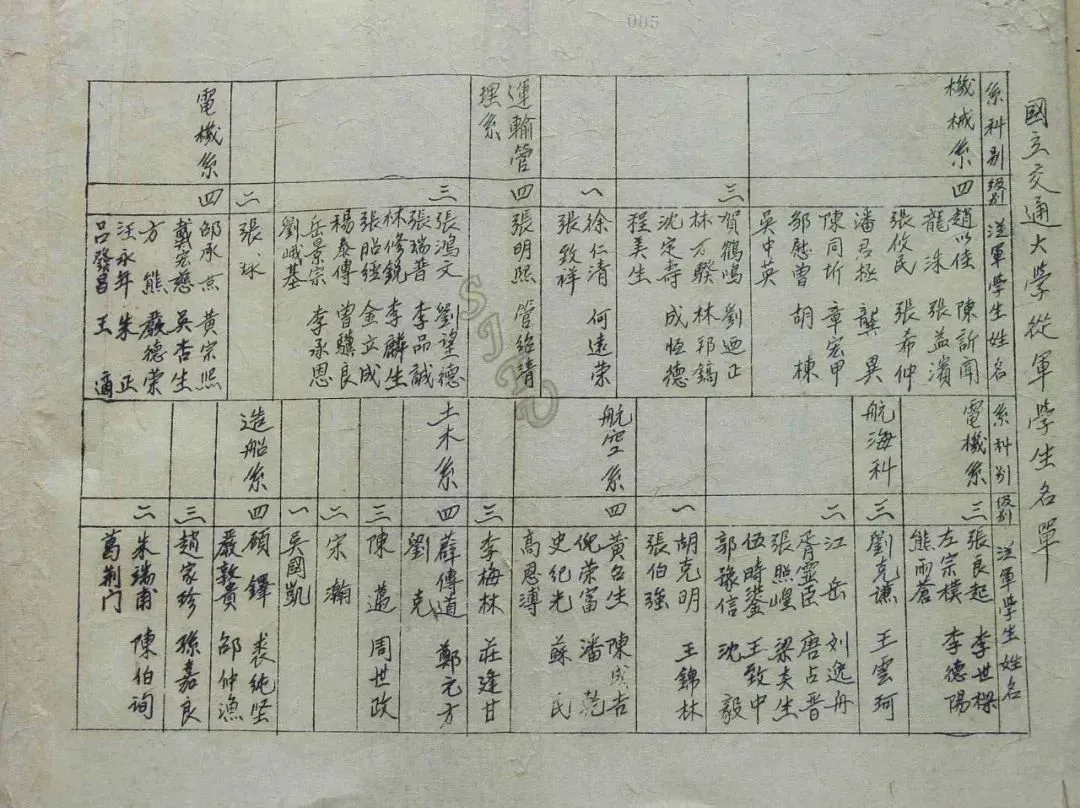 005
國立交通大學從軍學生名單
系科别
级别
從軍學生姓名
機械系
四
趙以佳 陳訢聞
龍洙 張益濱
張攸民 張希仲
潘君拯 龔異
陳同圻 章宏甲
鄒慰曾 胡棟
吳中英
三
賀鶴鳴 劉迺正
林万騤 林邦鎬
沈定壽 成恒德
程美生
一
徐仁清 何遠榮
張致祥
運輸管
理系
四
張明熙 管紹靖
三
張鴻文 劉望德
張瑞普 李品誠
林修銳 李麟生
張昭經 金立成
楊泰傳 曾驥良
岳景宗 李承恩
劉峨基
二
張球
電機系
四
邹承京 黄宗熙
戴宏慈 吳杏生
方熊 嚴德榮
汪永年 朱正
吕發昌 王適
系科别
级别
從軍學生姓名
電機系
三
張良起 李世樑
左宗樸 李德陽
熊雨蒼
航海科
三
劉克谦 王雲珂
二
江岳 刘逸舟
胥靈臣 唐占晋
張照煌 梁炎生
伍時鎏 王致中
郭豫信 沈毅
一
胡克明 王錦林
張伯強
航空系
四
黄召生 陳成吉
倪荣富 潘乾
史纪光 蘇民
高恩溥
三
李梅林 莊逢甘
土木系
四
薛傳道 鄭元方
劉克
三
陳邁 周世政
二
宋瀚
一
吴國凱
造船系
四
碩鐸 裘純坚
嚴敦貴 邹仲漁
三
趙家珍 孫嘉良
二
朱瑞甫 陳伯询
葛荆门
SJTU